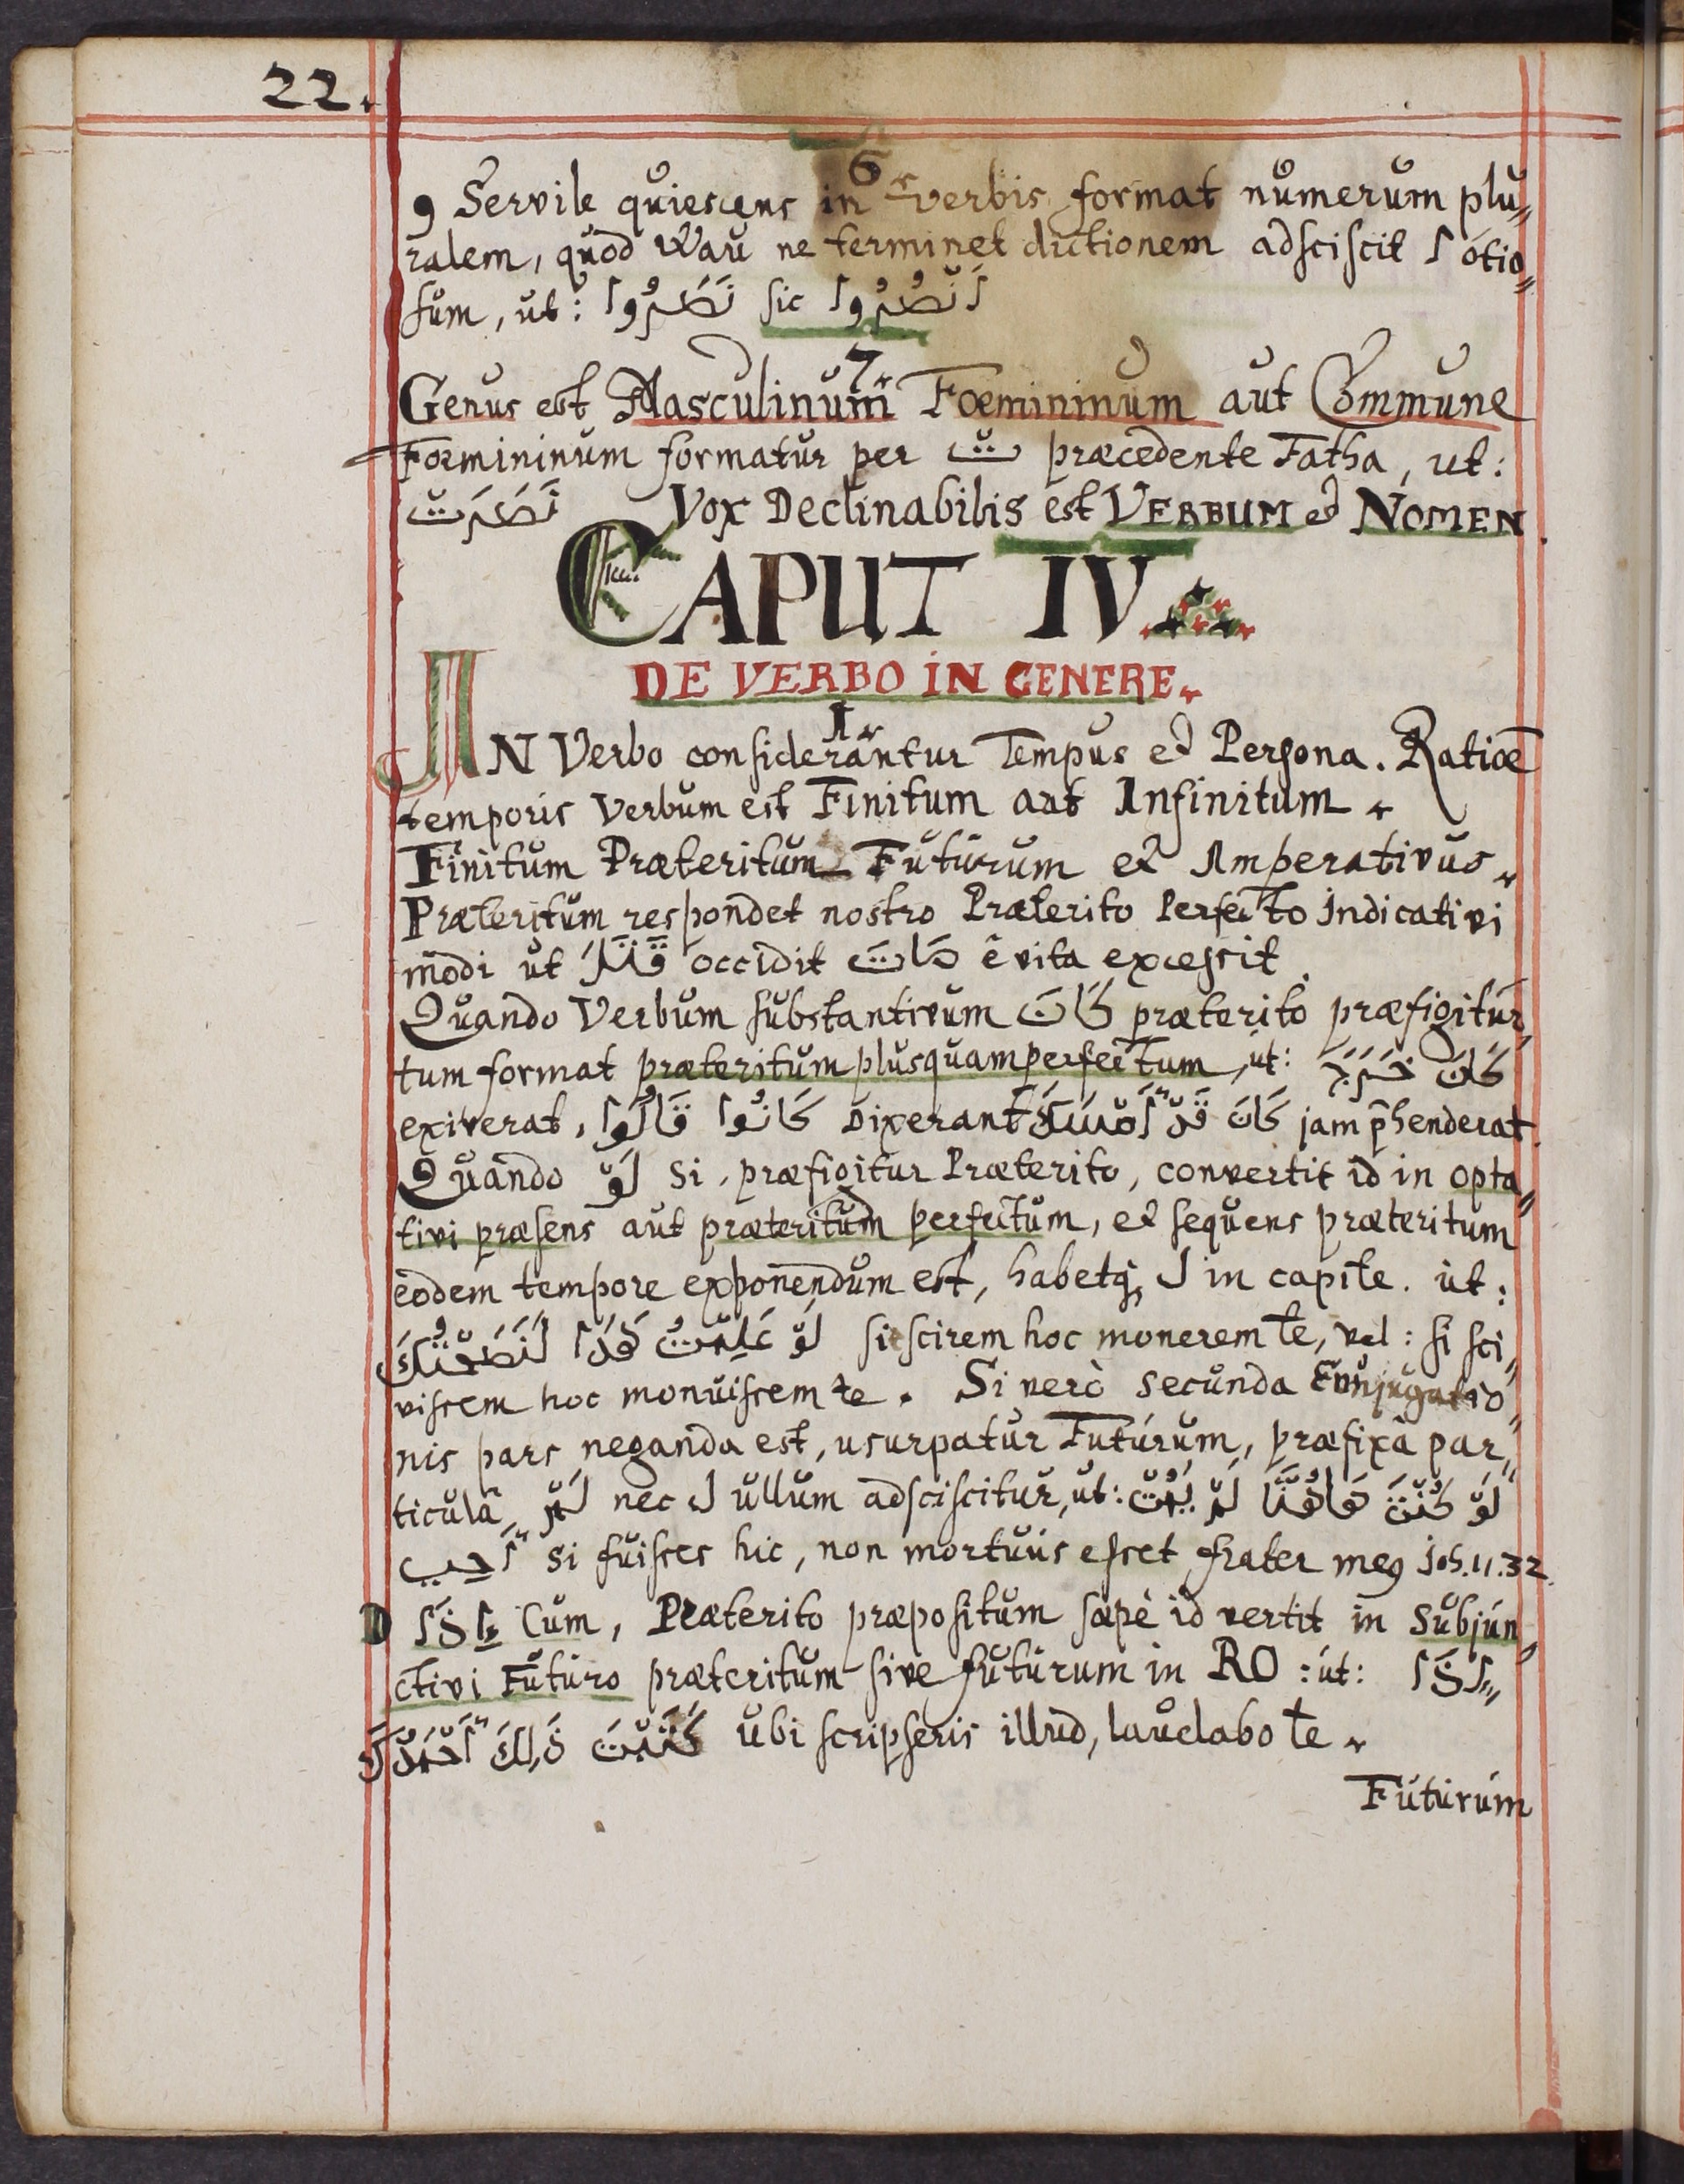 22.
6
و Servile quiescens in verbis format numerum plu„
ralem, quod Wau ne terminet dictionem adsciscit ا otio„
sum, ut: نَصَرُوا sic اَنْصُرُوا
7.
Genus est Masculinum Foemininum aut Commune
Foemininum formatur per تْ præcedente Fatha, ut:
نَصَرَتْ Vox Declinabilis est VERBUM et NOMEN.
CAPUT IV.
DE VERBO IN GENERE.
1.
IN Verbo considerantur Tempus et Persona. Ratioē
temporis Verbum est Finitum aut Infinitum.
Finitum Præteritum Futurum et Imperativus.
Præteritum respondet nostro Præterito Perfecto Indicativi
modi ut قَتَلَ occidit مَاتَ è vita excessit.
Quando Verbum substantivum كَانَ præterito præfigitur,
tum format præteritum plusquamperfectum, ut: كَانَ خَرَجَ
exiverat, كَانُوا قَالُوا Dixerant كَانَ قَدْ اَمْسَكَ jam p̄henderat.
Quando لَوْ si, præfigitur Præterito, convertit id in opta„
tivi præsens aut præteritum perfectum, et sequens præteritum
eodem tempore exponendum est, habetq́ ل in capite. ut:
لَوْ عَلِمْتُ هَذَا لَنَصَحْتُكَ si scirem hoc monerem te, vel: si sci„
vissem hoc monuissem te. Si verò secunda Conjugatio„
nis pars neganda est, usurpatur Futurum, præfixâ par„
ticulâ لَمْ nec ل ullum adsciscitur, ut: لَوْ كُنْتَ هَاهُنَا لَمْ يَمُتْ
اَخِي si fuisses hic, non mortuus esset frater meꝯ Joh. 11.32.
اِذَا Cum, Præterito præpositum sæpè id vertit in Subjun„
ctivi Futuro præteritum sive futurum in RO: ut: اِذَا
كَتَبْتَ ذَلِكَ اَحْمَدْكَ ubi scripseris illud, laudabo te.
Futurum